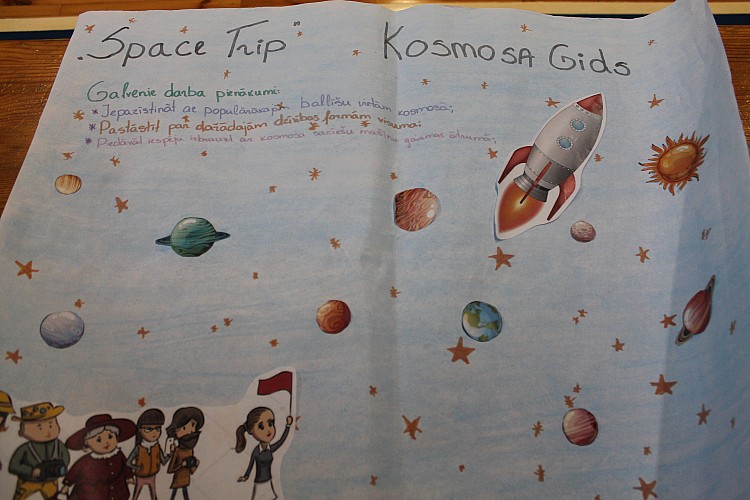 „Space Trip" Kosmosa Gids
Galvenie darba pienākumi:
* Iepazīstināt ar populārākajām ballīšu vietām kosmosā;
* Pastāstīt par dažādajām dzīvības formām visumā;
* Piedāvāt iespēju izbraukt ar kosmosa gaismas ātrumā;